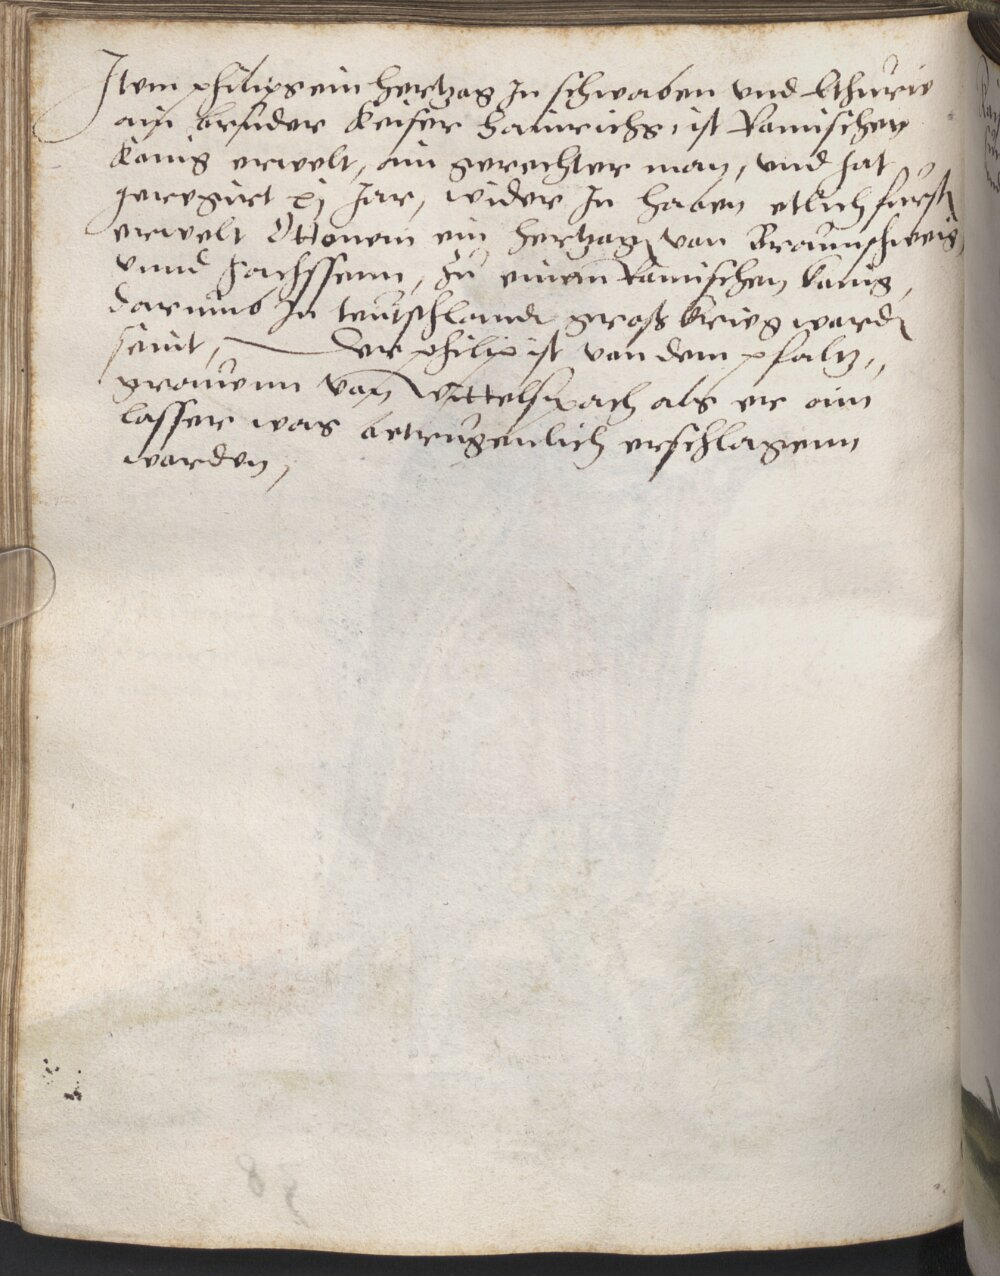 Item philips ein hertzog In schwaben vnd Ethurie
ain bruder keiser hainrichs, ist Romischen
konig erwelt, ain gerechter man, vnd hat
geregirt xj Jar, wider In haben etlich furst
erwelt Ottonem ein hertzogen von Braunschweig,
vnnd Sachssenn, zu einem Romischen konig,
darumb In teutschlandt groß krieg wordn
seint, Der philip ist von dem pfaltz,,
grauenn von Wittelspach als er ain
lasser was betrugenlich erschlagenn
worden,
38